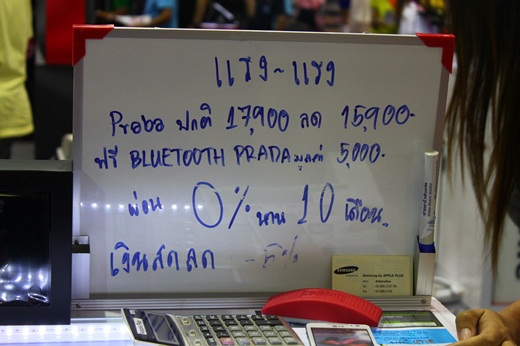 แรง~แรง
Praba ปกติ 17,900 ลด 15,900.-
ฟรี BLUETOOTH PRADA มูลค่า 5,000.-
ผ่อน 0% นาน 10 เดือน.
เงินสดลด -5%
SAMSUNG
Samsung by APPLE PLUS